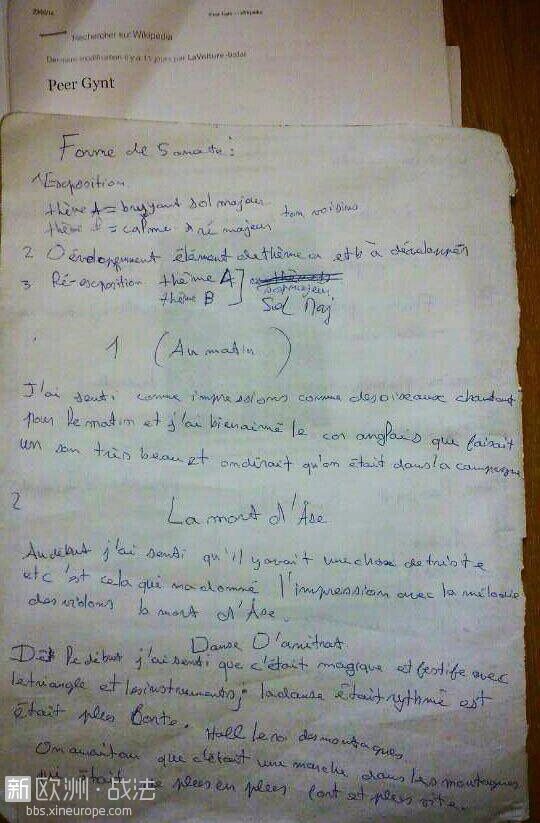 Peer Gynt - Wikipédia
Rechercher sur Wikipédia
Dernière modification il y a 15 jours par LaVoiture-balai
Peer Gynt
Forme de Sonate :
1 Exposition
thème A = bruyant sol majeur
thème B = calme ré majeur tom voisins
2 Développement élément de thème a et b à développer
3 Ré-exposition thème A
thème B ] Sol Maj
1 (Au matin)
J'ai senti comme impressions comme des oiseaux chantant
pour le matin et j'ai bien aimé le cor anglais que faisait
un son très beau et on dirait qu'on était dans la campagne
2 La mort d'Åse
Au début j'ai senti qu'il y avait une chose de triste
et c'est cela qui ma donné l'impression avec la mélodie
des violons la mort d'Åse.
Danse D'anitrat.
Dès le début j'ai senti que c'était magique et festife avec
le triangle et les instruments, la danse était rythmé est
était ples forte.
Hall le roi des montagnes
que c'était une marche dans les montagnes
qui était de ples en ples fort et ples vite.
新欧洲·战法
bbs.xineurope.com